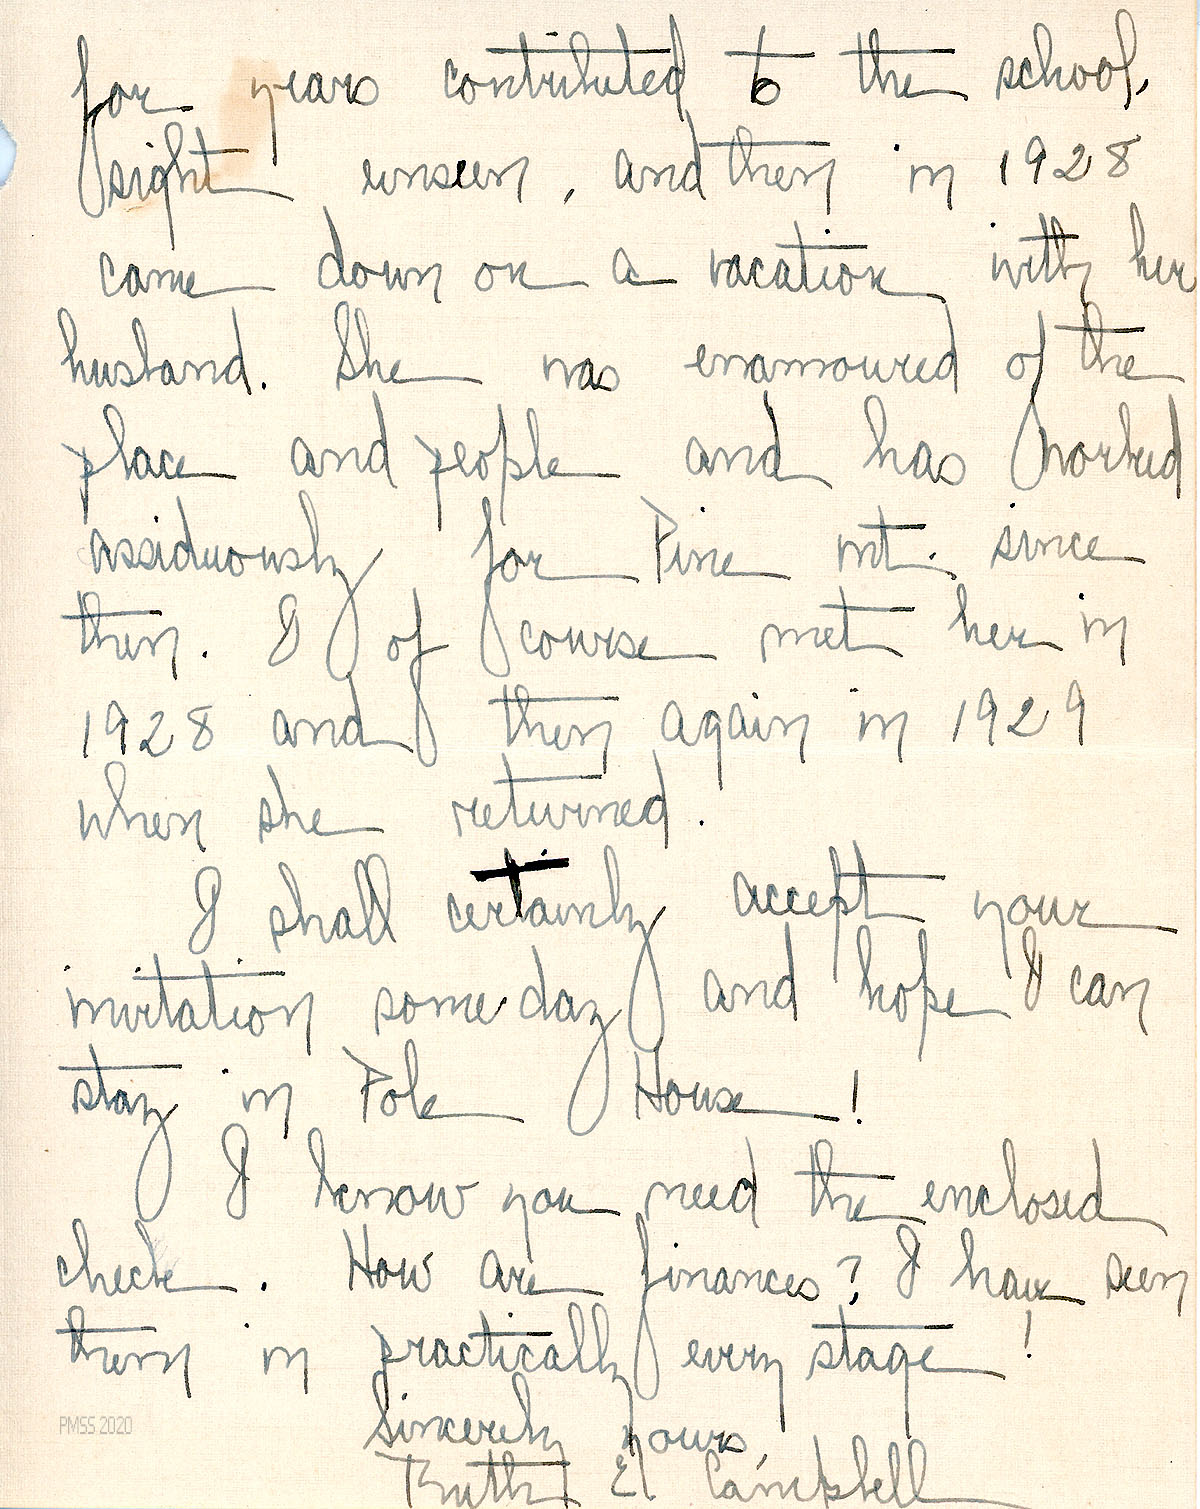 for years contributed to the school,
sight unseen, and then in 1928
came down on a vacation with her
husband. She was enamoured of the
place and people and has worked
assiduously for Pine Mt. since
then. I of course met her in
1928 and then again in 1929
when she returned.
I shall certainly accept your
invitation some day and hope I can
stay in Pole House!
I know you need the enclosed
check. How are finances? I have seen
them in practically every stage!
Sincerely yours,
Ruth E. Campbell
PMSS 2020